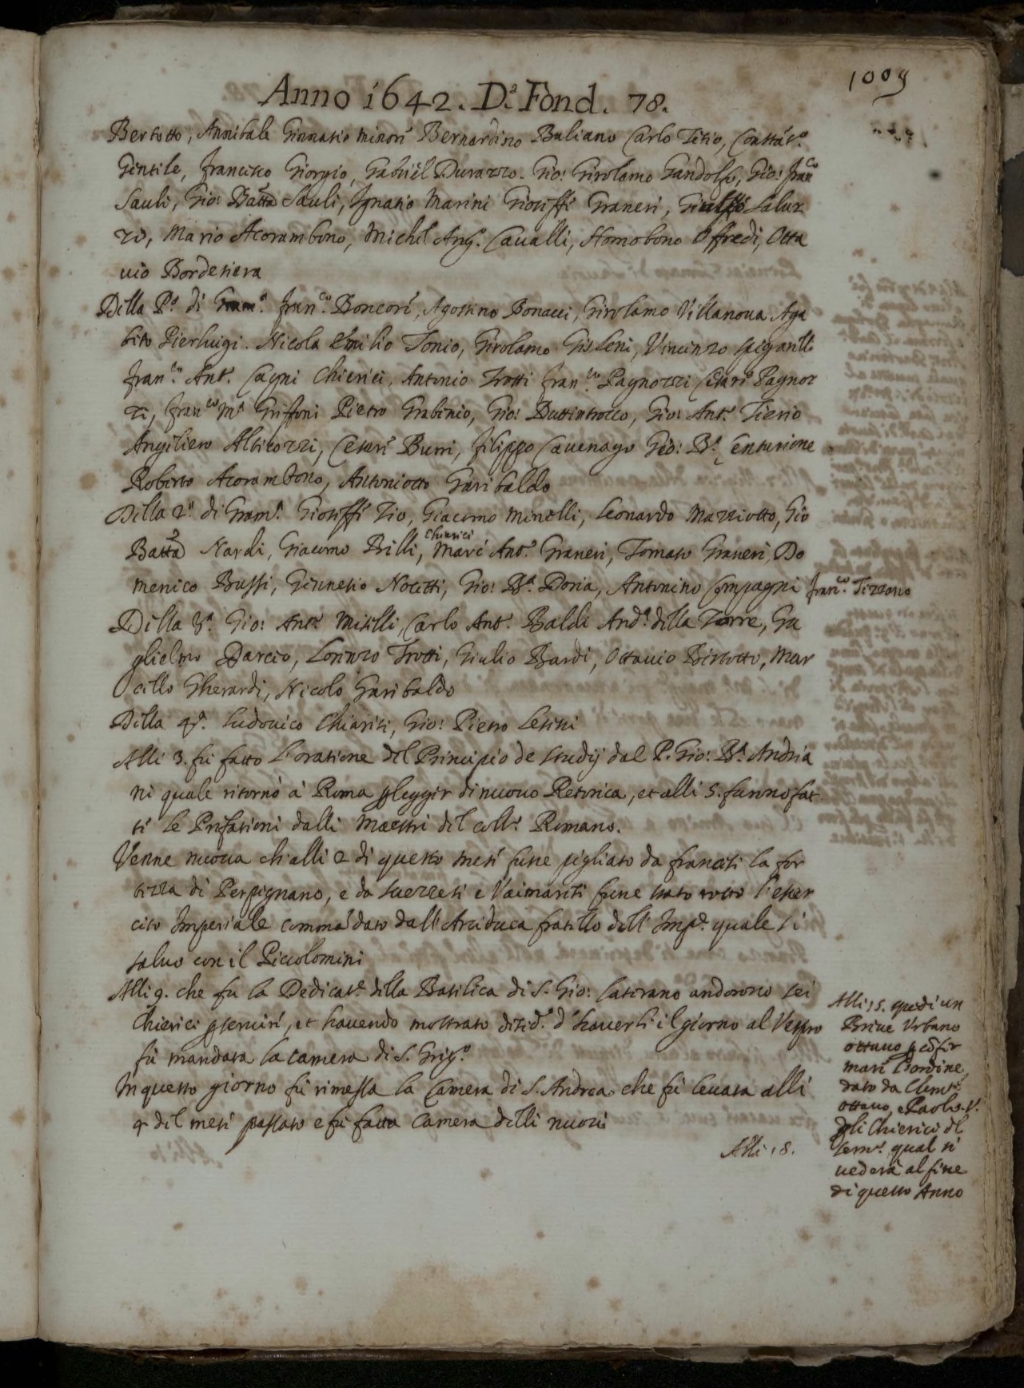 1009
Anno 1642. D.ª Fond. 78.
Bertotto, Annibale Ginnasio minori Bernardino Baliano Carlo Titio,
Gentile, Francesco Giorgio, Gabriel Durazzo. Gio: Girolamo Gandolfo, Gio: Fran.co
Sauli, Gio: Batta Sauli, Ignatio Marini Gioseffe Graneri, Giuseppe Saluz
zo, Mario Acorambono, Michel Ang.º Cavalli, Homobono Offredi, Otta
uio Bordesiera
Della P.ª di Gram.ª Fran.co Boncori, Agostino Bonacci, Girolamo Villanova. Aga
bito Pierluigi. Nicola Emilio Tonio, Girolamo Gisleni, Vincenzo
Fran.co Ant.º Cagni Chierici, Antonio Trotti Fran.co Pagnozzi Cesare Pagnoz
zi, Fran.co M.ª Griffoni Pietro Grabinio, Gio: Gio: Ant.º Tierio
Angiliero Alticozzi, Cesare Burri, Filippo Cauenago Gio: B.ª Centurione
Roberto Acorambono, Antoniotto Garibaldo
Della 2.ª di Gram.ª Gioseffe Zio, Giacomo Minelli, Leonardo Mazziotto, Gio
Batta Nardi, Giacomo Brilli, Chierici Marc'Ant.º Graneri, Tomaso Graneri, Do
menico Bussi, Ginnesio Nocetti, Gio: B.ª Doria, Antonino Compagni Fran.co Tizzano
Della 3.ª Gio: Ant.º Mitelli Carlo Ant.º Baldi And.ª della Torre, Gu
glielmo Darcio, Lorenzo Trotti, Giulio Bardi, Ottauio Bertotto, Mar
cello Gherardi, Nicolo Garibaldo
Della 4.ª Ludouico Chiariti, Gio: Pietro Lesini
Alli 3. fù fatto l'oratione del Principio de studij dal P. Gio: B.ª Andria
ni quale ritornò à Roma p legger di nuouo Retorica, et alli 5. furno fat
te le Prefationi dalli Maestri del coll.º Romano.
Venne nuoua ch'alli 2 di questo mese fusse pigliato da francesi la for
tezza di Perpignano, e da Suezzesi e Vaimaresi fusse stato rotto l'eser
cito Imperiale comma'dato dall'Arciduca fratello dell'Imp.re quale si
saluo con il Piccolomini
Alli 9. che fu la Dedicat.e della Basilica di S. Gio: Laterano andorono sei
Chierici p seruire, et hauendo mostrato desid.º d'hauerli il giorno al Vespro
fù mandata la camera di S. Grig.º
In questo giorno fù rimessa la Camera di S. Andrea che fù leuata alli
4 del mese passato e fù fatta Camera delli nuoui
Alli 18.
Alli 15. spedì un
Breue Vrbano
ottauo p cõfir
mare l'ordine
dato da Clem.te
ottauo, e Paolo V.
p li Chierici del
sem.º qual si
uederà al fine
di questo Anno